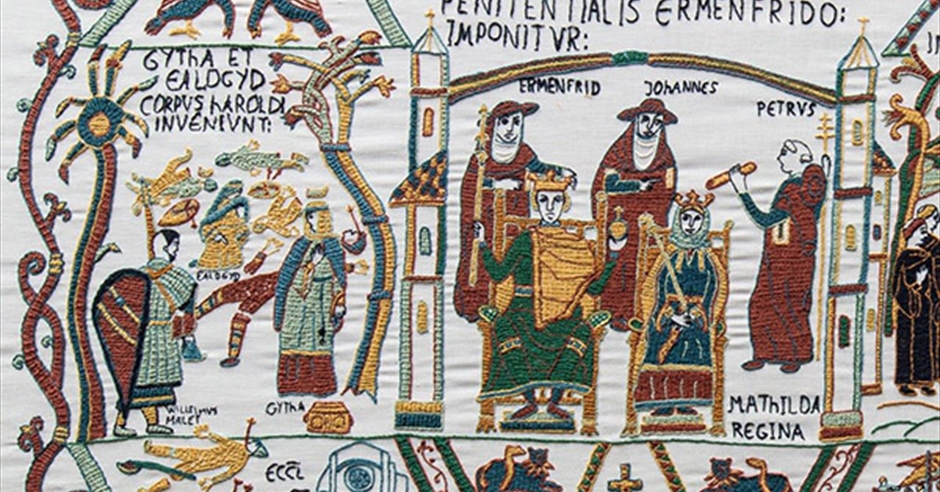 PENITENTIALIS ERMENFRIDO:
IMPONITVR:
GYTHA ET
EALDGYD
CORPVS HAROLDI
INVENIVNT:
ERMENFRID
JOHANNES
PETRVS
EALDGYD
WILLELMVS
MALET
GYTHA
MATHILDA
REGINA
ECCL